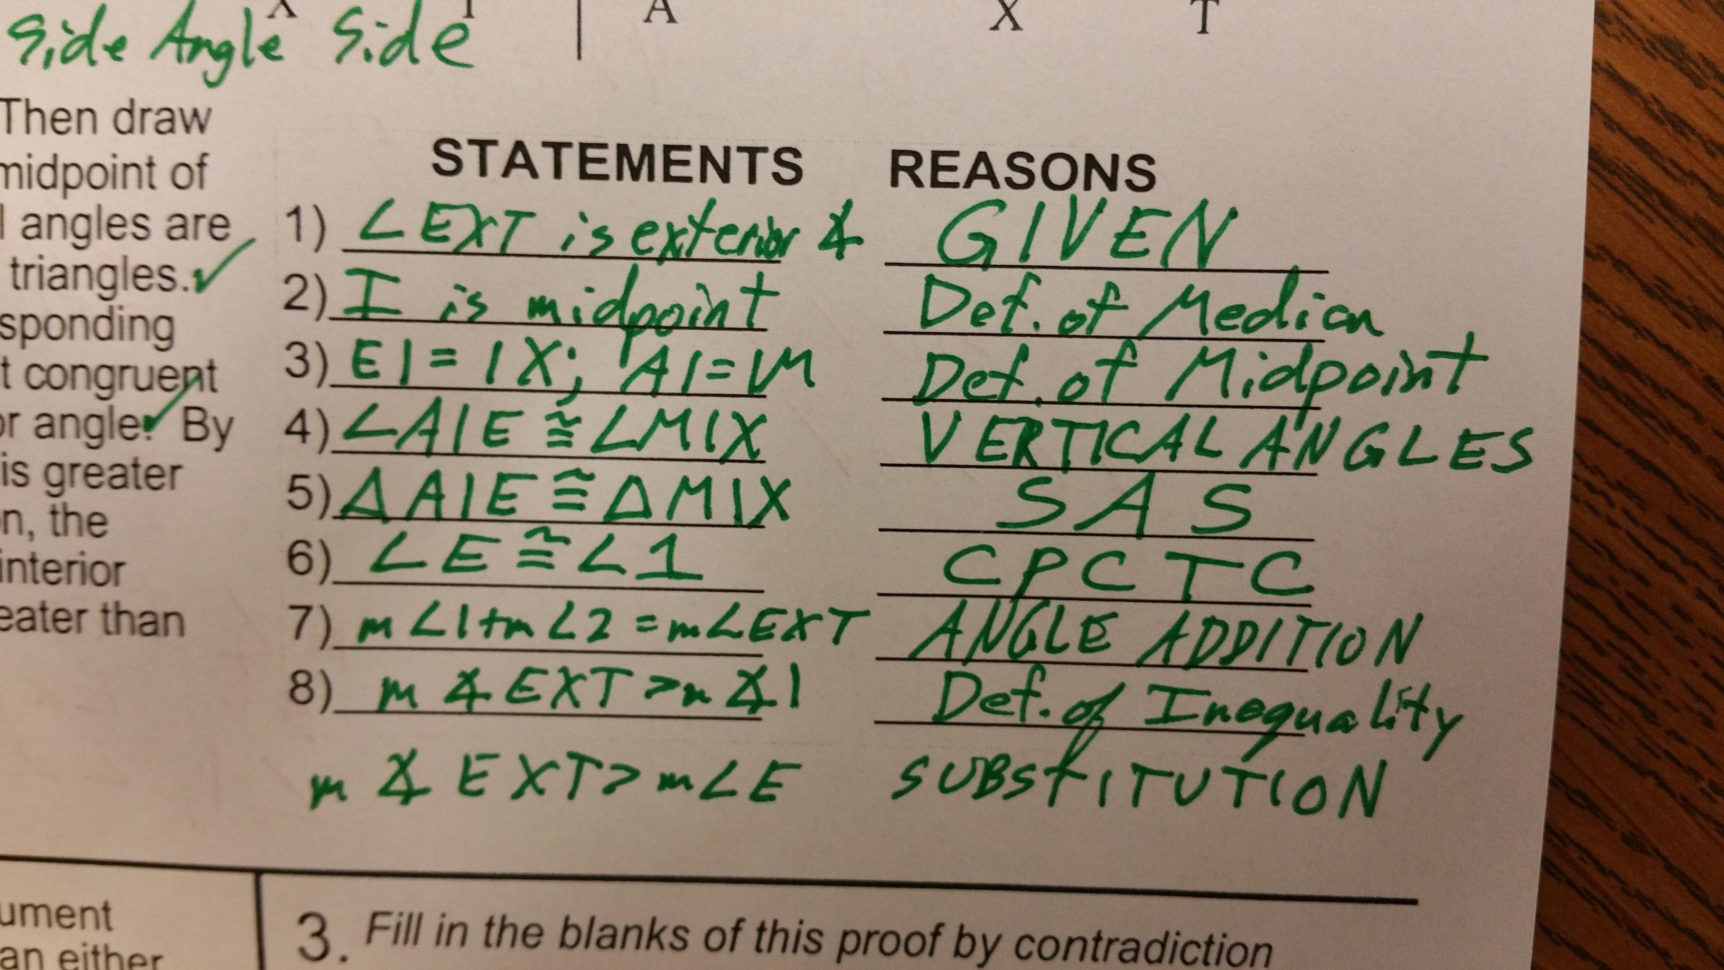 X T A X T
Side Angle Side
Then draw
midpoint of
l angles are
triangles.✓
sponding
t congruent
or angle.✓ By
is greater
n, the
interior
eater than
STATEMENTS REASONS
1) ∠EXT is exterior ∡ GIVEN
2) I is midpoint Def. of Median
3) EI = IX; AI = IM Def. of Midpoint
4) ∠AIE ≅ ∠MIX VERTICAL ANGLES
5) △AIE ≅ △MIX SAS
6) ∠E ≅ ∠1 CPCTC
7) m∠1+m∠2 = m∠EXT ANGLE ADDITION
8) m∡EXT > m∡1 Def. of Inequality
m∡EXT > m∠E SUBSTITUTION
ument
an either
3. Fill in the blanks of this proof by contradiction